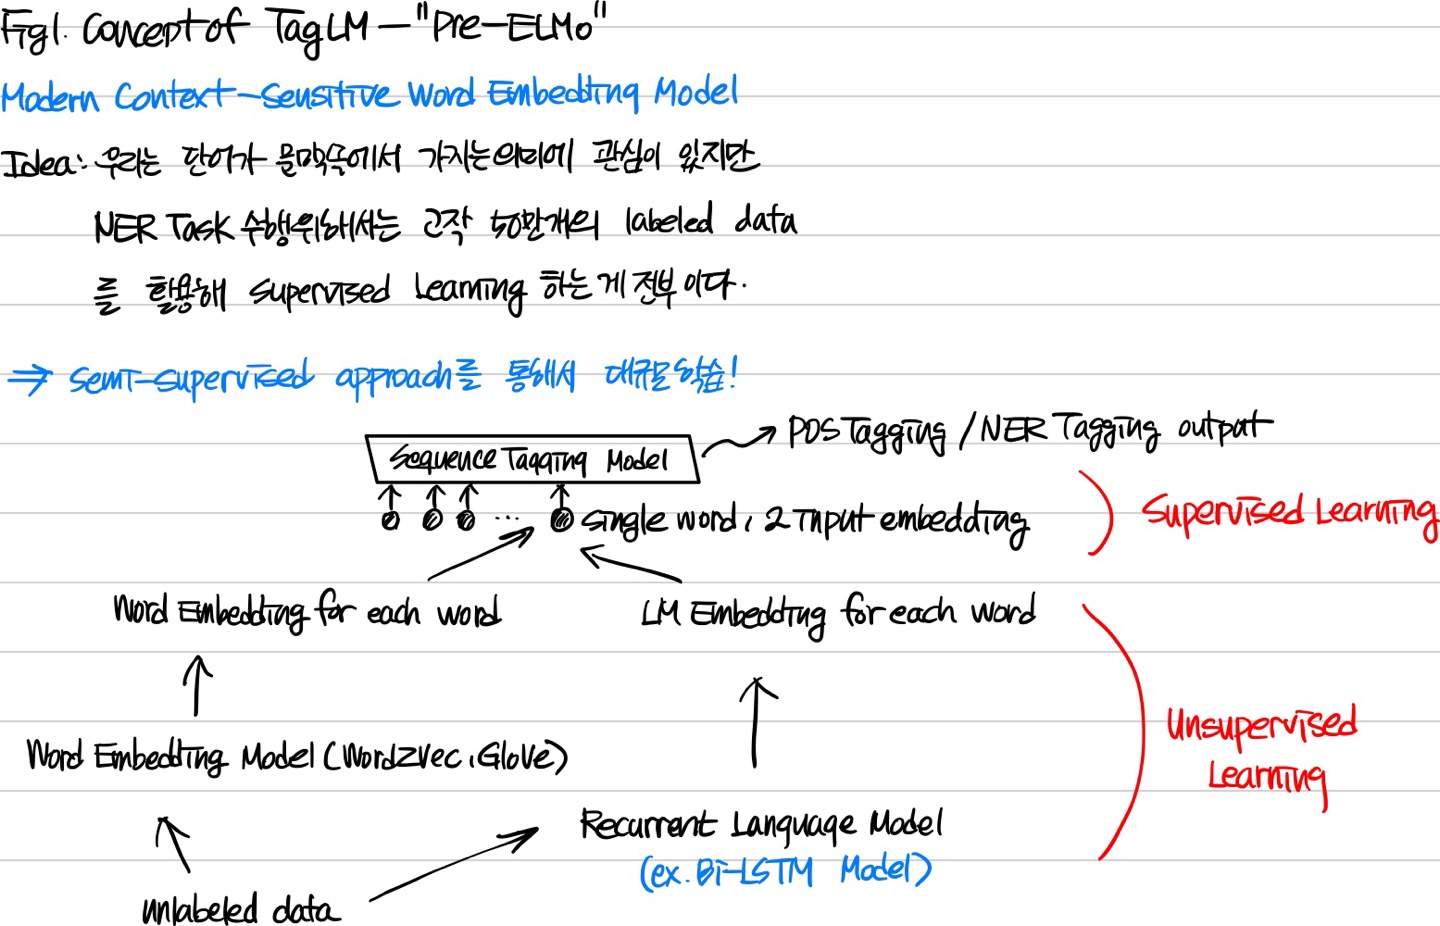 Fig1. Concept of TagLM - "Pre-ELMo"
Modern Context-Sensitive Word Embedding Model
Idea: 우리는 단어가 문맥속에서 가지는 의미에 관심이 있지만
NER Task 수행위해서는 고작 50만개의 labeled data
를 활용해 supervised Learning 하는 게 전부이다.
⇒ semi-supervised approach를 통해서 대규모 학습!
POS Tagging / NER Tagging output
Sequence Tagging Model
... single word, 2 input embedding
Supervised Learning
Word Embedding for each word
LM Embedding for each word
Unsupervised
Learning
Word Embedding Model (Word2Vec, GloVe)
Recurrent Language Model
(ex. Bi-LSTM Model)
unlabeled data